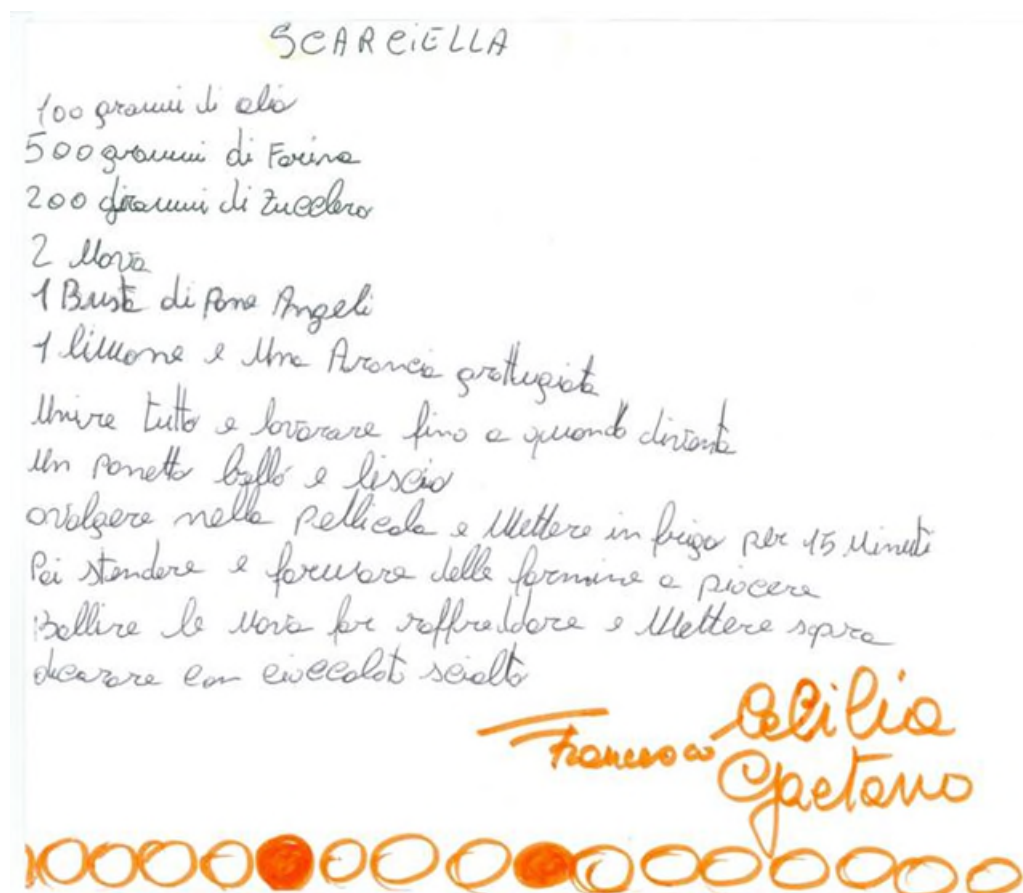 SCARCIELLA
100 grammi di olio
500 grammi di Farina
200 grammi di Zucchero
2 Uova
1 Busta di Pane Angeli
1 limone e Una Arancia grattugiata
Unire tutto e lavorare fino a quando diventa
Un Panetto bello e liscio
avolgere nella Pellicola e Mettere in frigo per 15 Minuti
Poi stendere e formare delle formine a piacere
Bollire le Uova far raffreddare e Mettere sopra
decorare con cioccolato sciolto
Francesco Cecilia
Gaetano